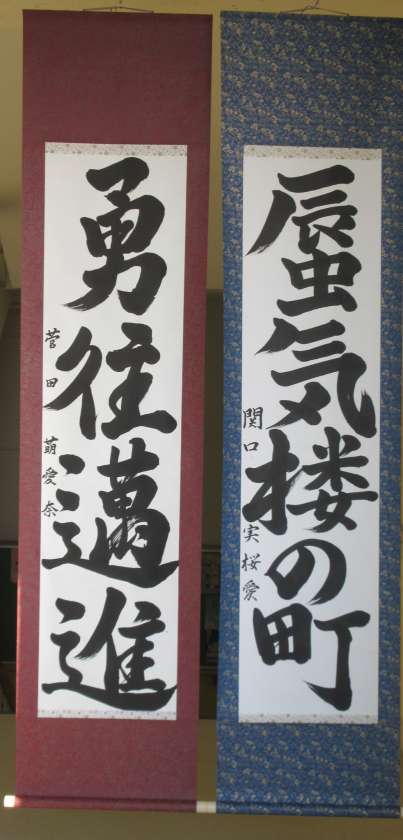 蜃気楼の町
関口実桜愛
勇往邁進
菅田萌愛奈